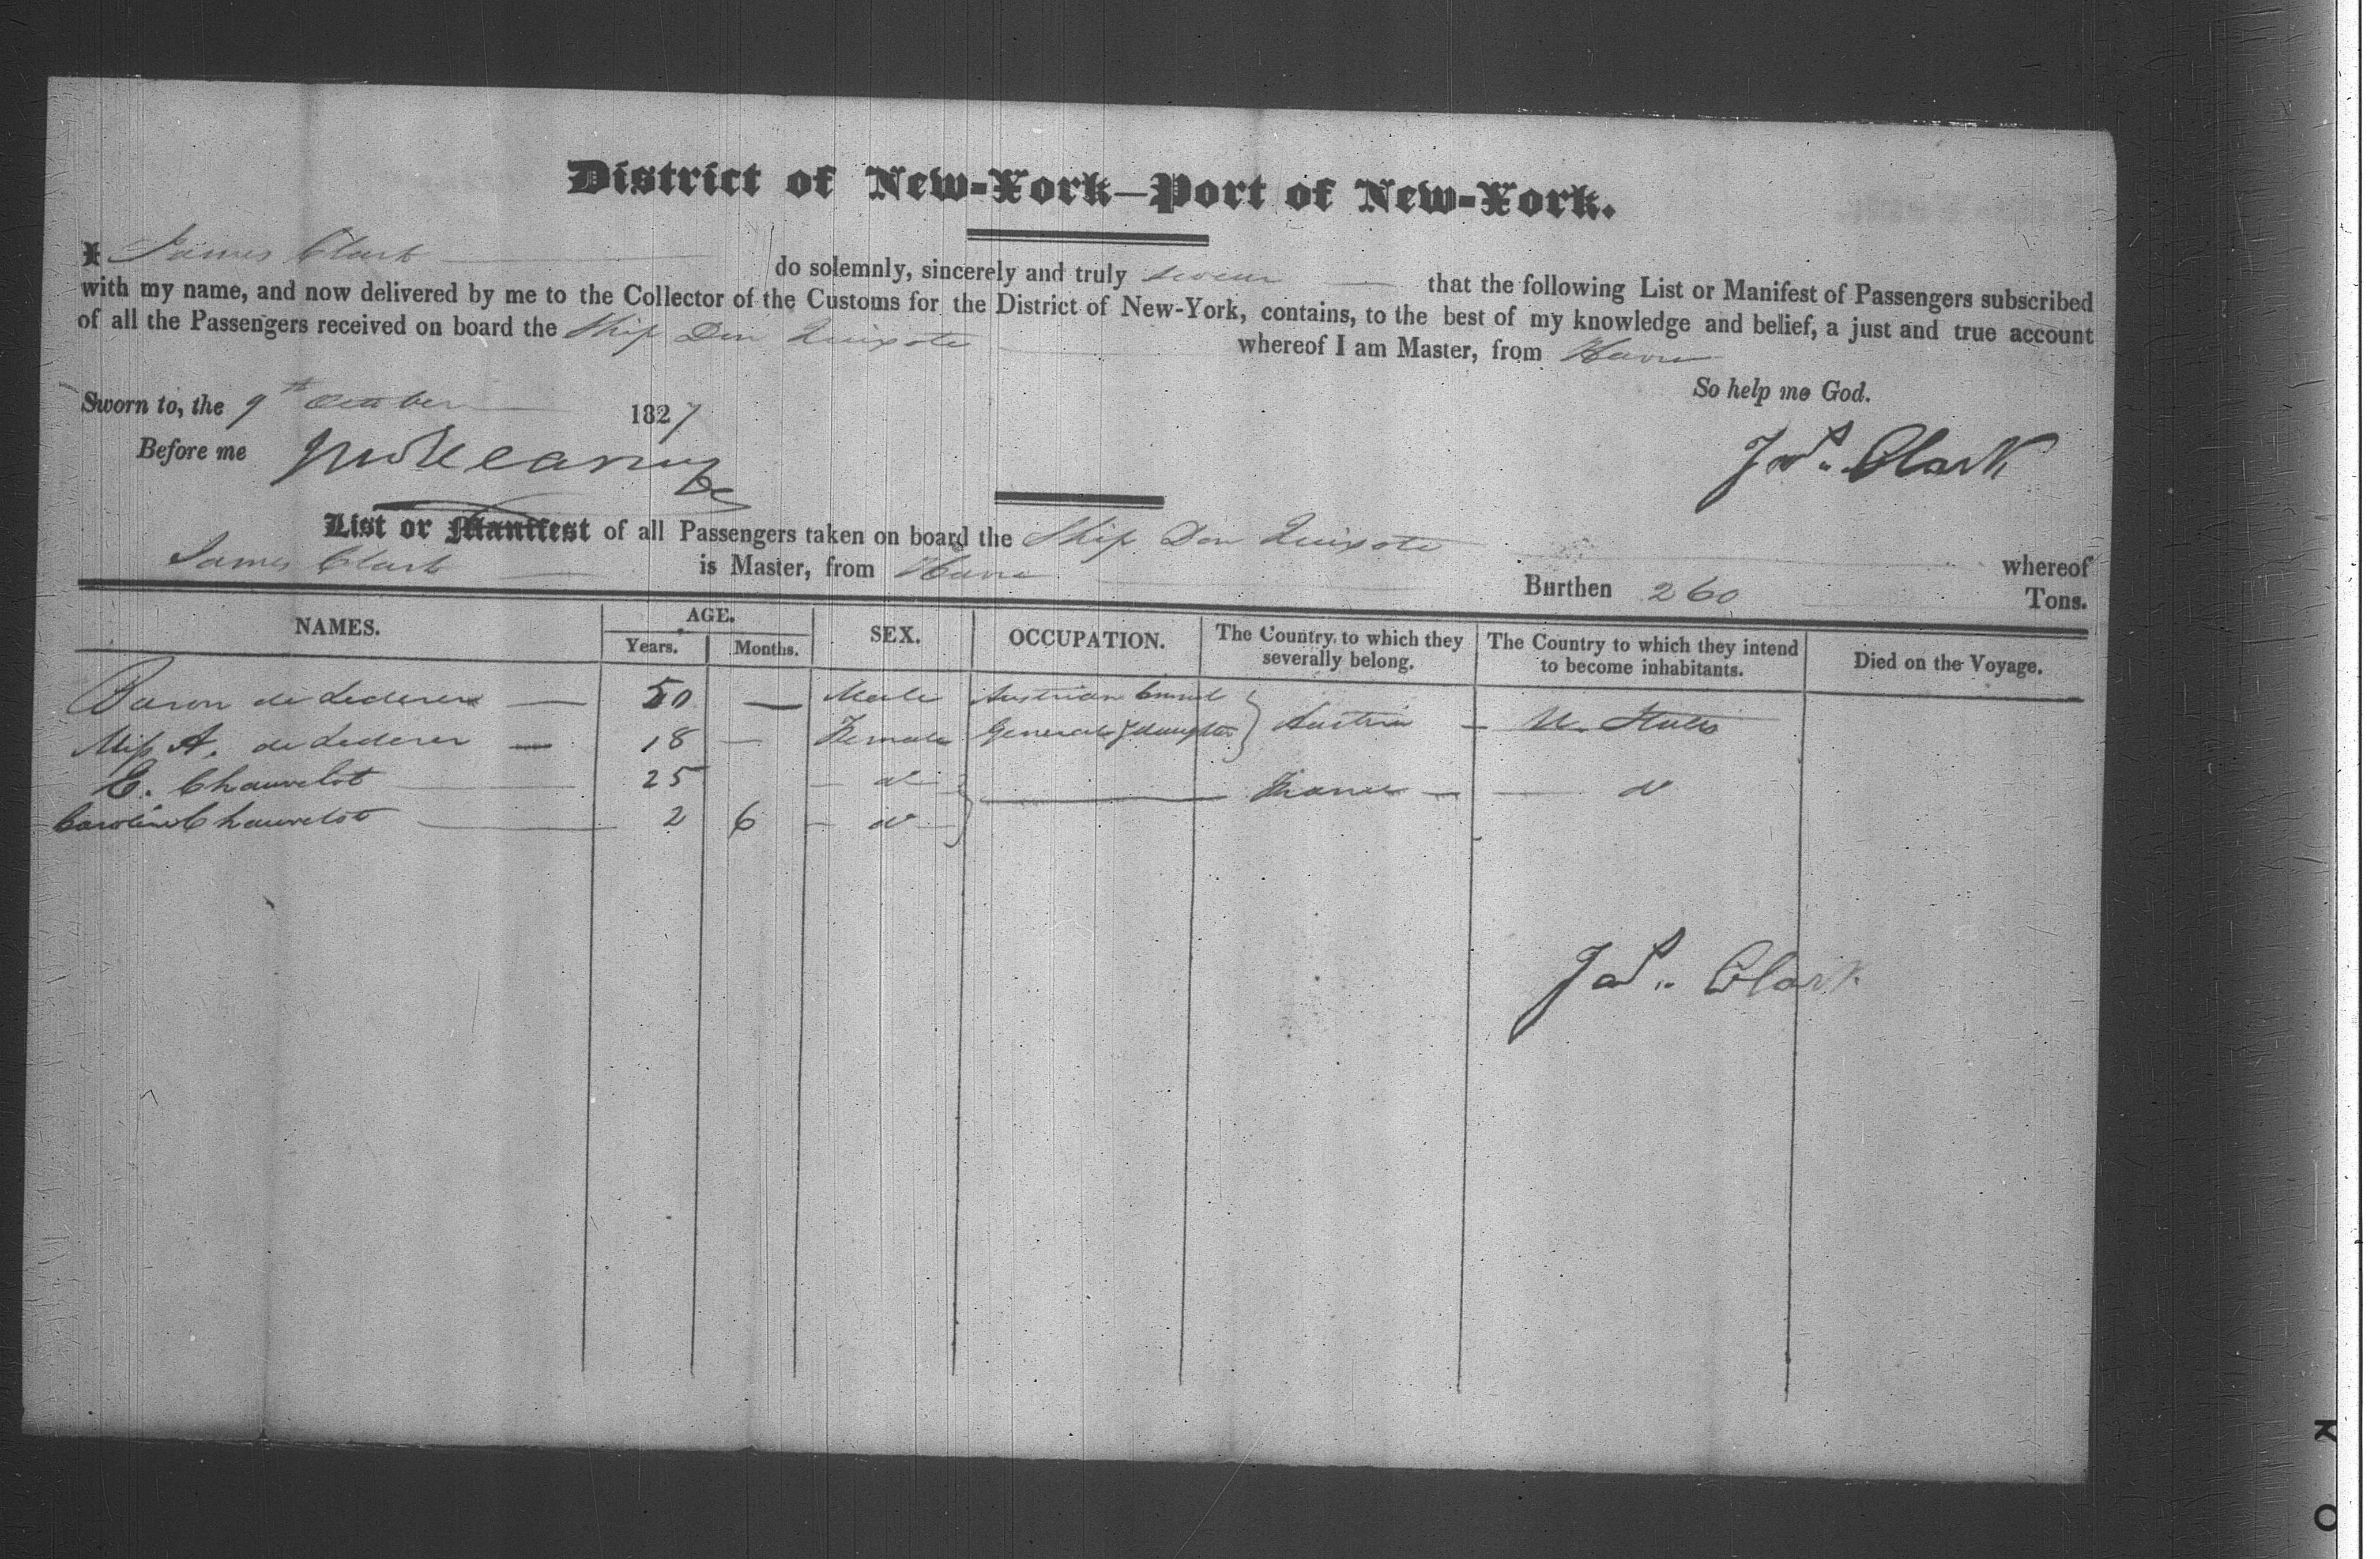 District of New-York—Port of New-York.
I James Clark do solemnly, sincerely and truly swear that the following List or Manifest of Passengers subscribed
with my name, and now delivered by me to the Collector of the Customs for the District of New-York, contains, to the best of my knowledge and belief, a just and true account
of all the Passengers received on board the Ship Don Quixote whereof I am Master, from Havre
So help me God.
Sworn to, the 9th October 1827
Before me
Jas. Clark
List or Manifest of all Passengers taken on board the Ship Don Quixote whereof
James Clark is Master, from Havre Burthen 260 Tons.
NAMES. AGE. Years. Months. SEX. OCCUPATION. The Country to which they severally belong. The Country to which they intend to become inhabitants. Died on the Voyage.
Baron de Lederer — 50 — Male Austrian Consul
Miss A. de Lederer — 18 — Female General & daughter } Austria — U. States
E. Chauvelot 25 — do — France — do
Caroline Chauvelot 2 6 — do —
Jas. Clark
K
O